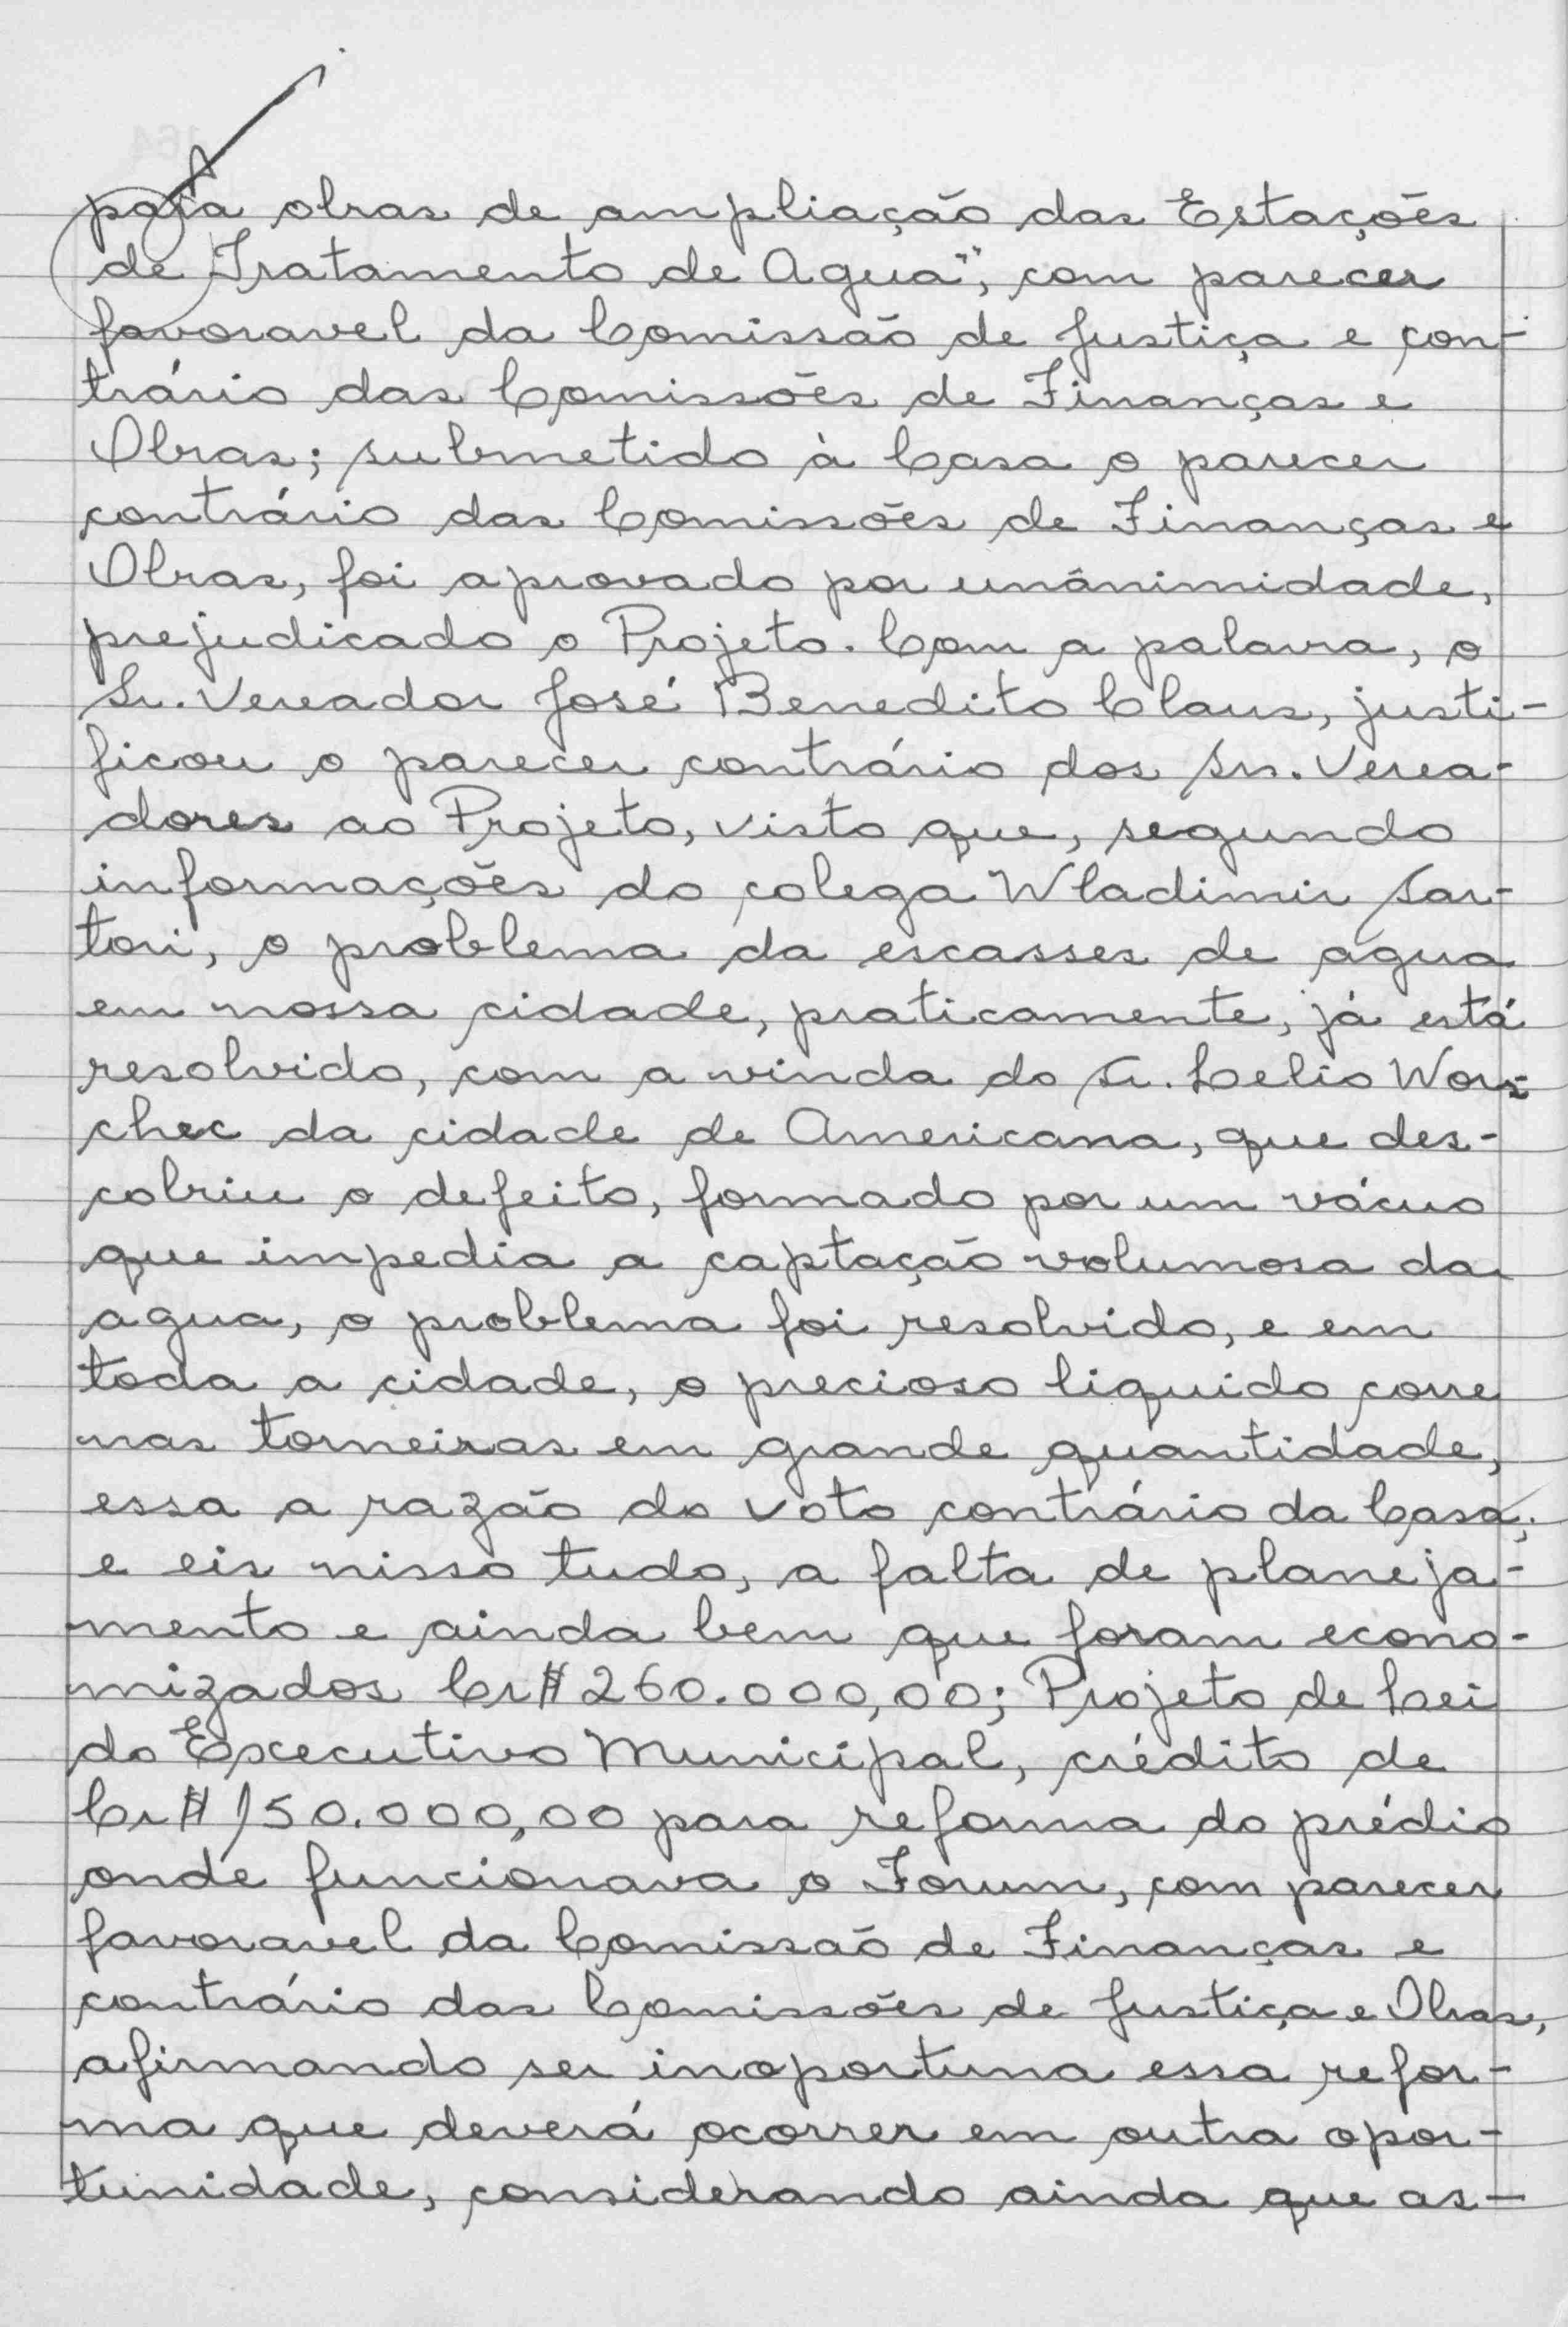 para obras de ampliação das Estações
de Tratamento de Agua", com parecer
favoravel da Comissão de Justiça e con-
trário das Comissões de Finanças e
Obras; submetido à Casa o parecer
contrário das Comissões de Finanças e
Obras, foi aprovado por unânimidade,
prejudicado o Projeto. Com a palavra, o
Sr. Vereador José Benedito Claus, justi-
ficou o parecer contrário dos Srs. Verea-
dores ao Projeto, visto que, segundo
informações do colega Wladimir Sar-
tori, o problema da escasses de agua
em nossa cidade, praticamente, já está
resolvido, com a vinda do Sr. Lelio Wors-
chec da cidade de Americana, que des-
cobriu o defeito, formado por um vácuo
que impedia a captação volumosa da
agua, o problema foi resolvido, e em
toda a cidade, o precioso liquido corre
nas torneiras em grande quantidade,
essa a razão do voto contrário da Casa;
e eis nisso tudo, a falta de planeja-
mento e ainda bem que foram econo-
mizados Cr$ 260.000,00; Projeto de Lei
do Executivo Municipal, crédito de
Cr$ 150.000,00 para reforma do prédio
onde funcionava o Forum, com parecer
favoravel da Comissão de Finanças e
contrário das Comissões de Justiça e Obras,
afirmando ser inoportuna essa refor-
ma que deverá ocorrer em outra opor-
tunidade, considerando ainda que as-